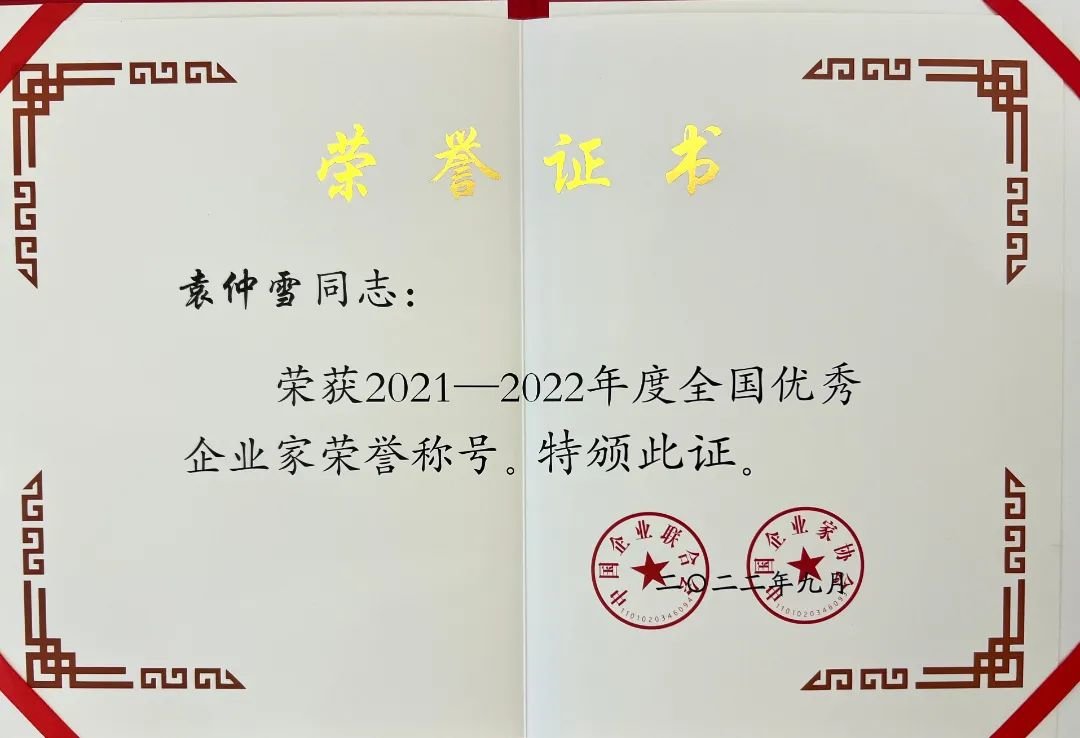 荣誉证书
袁仲雪同志：
荣获2021—2022年度全国优秀
企业家荣誉称号。特颁此证。
中国企业联合会
中国企业家协会
二〇二二年九月